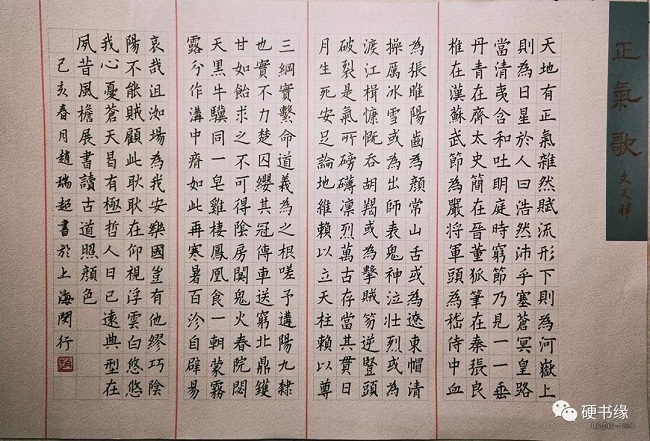 正氣歌
文天祥
天地有正氣雜然賦流形下則為河嶽上
則為日星於人曰浩然沛乎塞蒼冥皇路
當清夷含和吐明庭時窮節乃見一一垂
丹青在齊太史簡在晉董狐筆在秦張良
椎在漢蘇武節為嚴將軍頭為嵇侍中血
為張睢陽齒為顏常山舌或為遼東帽清
操厲冰雪或為出師表鬼神泣壯烈或為
渡江楫慷慨吞胡羯或為擊賊笏逆豎頭
破裂是氣所磅礴凛烈萬古存當其貫日
月生死安足論地維賴以立天柱賴以尊
三綱實繫命道義為之根嗟予遘陽九隸
也實不力楚囚纓其冠傳車送窮北鼎鑊
甘如飴求之不可得陰房闃鬼火春院閟
天黑牛驥同一皂雞棲鳳凰食一朝蒙霧
露分作溝中瘠如此再寒暑百沴自辟易
哀哉沮洳場為我安樂國豈有他繆巧陰
陽不能賊顧此耿耿在仰視浮雲白悠悠
我心憂蒼天曷有極哲人日已遠典型在
夙昔風檐展書讀古道照顏色
己亥春月趙瑞超書於上海閔行
硬书缘